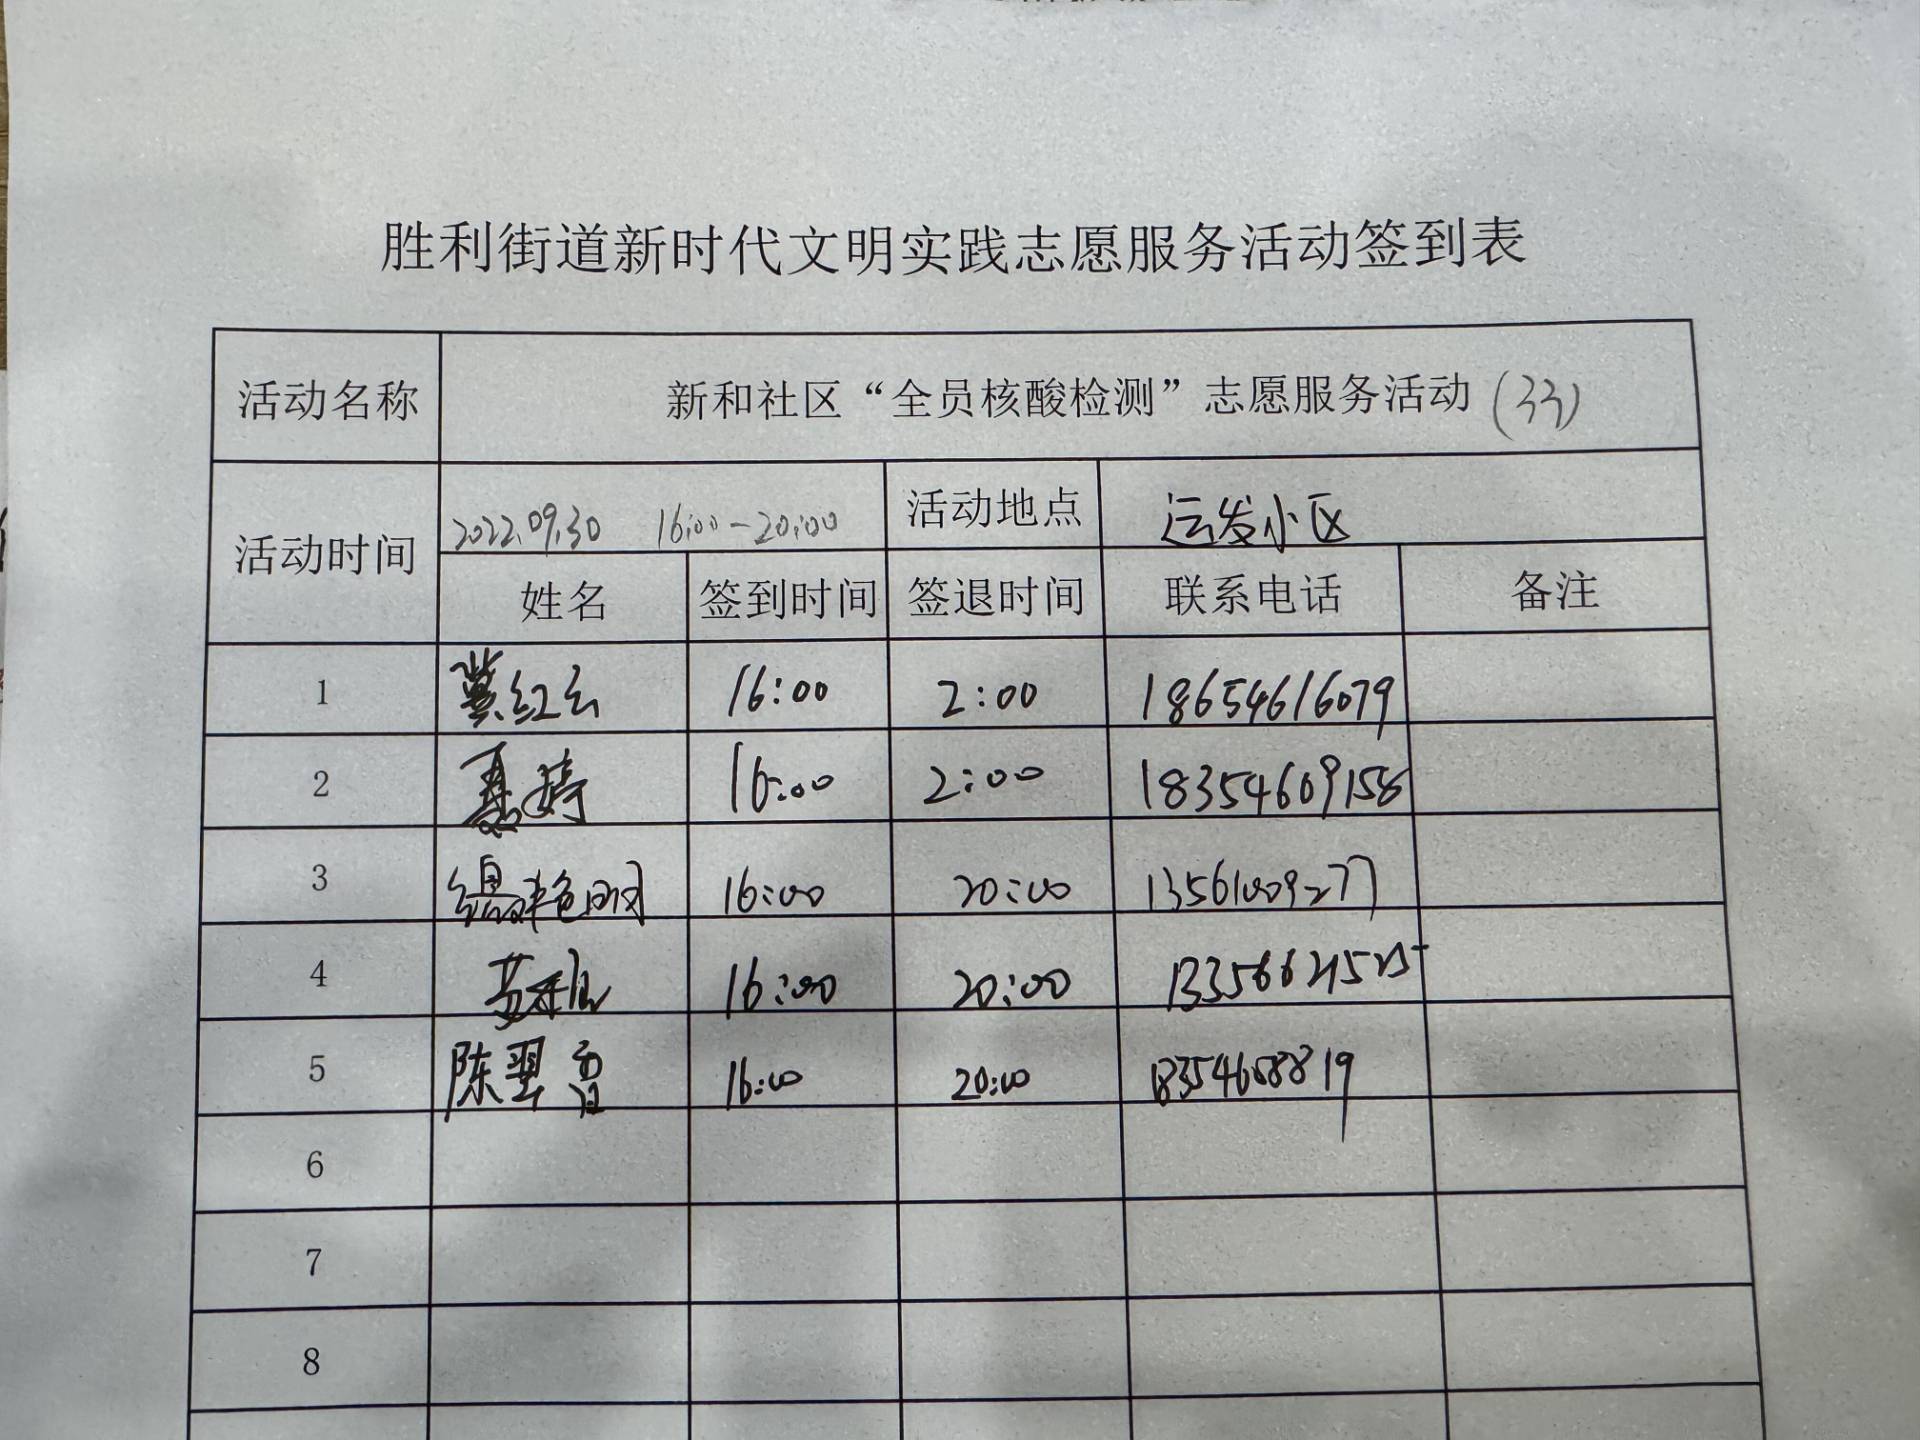 胜利街道新时代文明实践志愿服务活动签到表
活动名称 新和社区“全员核酸检测”志愿服务活动 (33)
活动时间 2022.09.30 16:00-20:00 活动地点 运发小区
姓名 签到时间 签退时间 联系电话 备注
1 冀红云 16:00 2:00 18654616079
2 聂婷 16:00 2:00 18354609156
3 16:00 20:00 13561009277
4 16:00 20:00
5 陈翠雷 16:00 20:00 18354688819
6
7
8